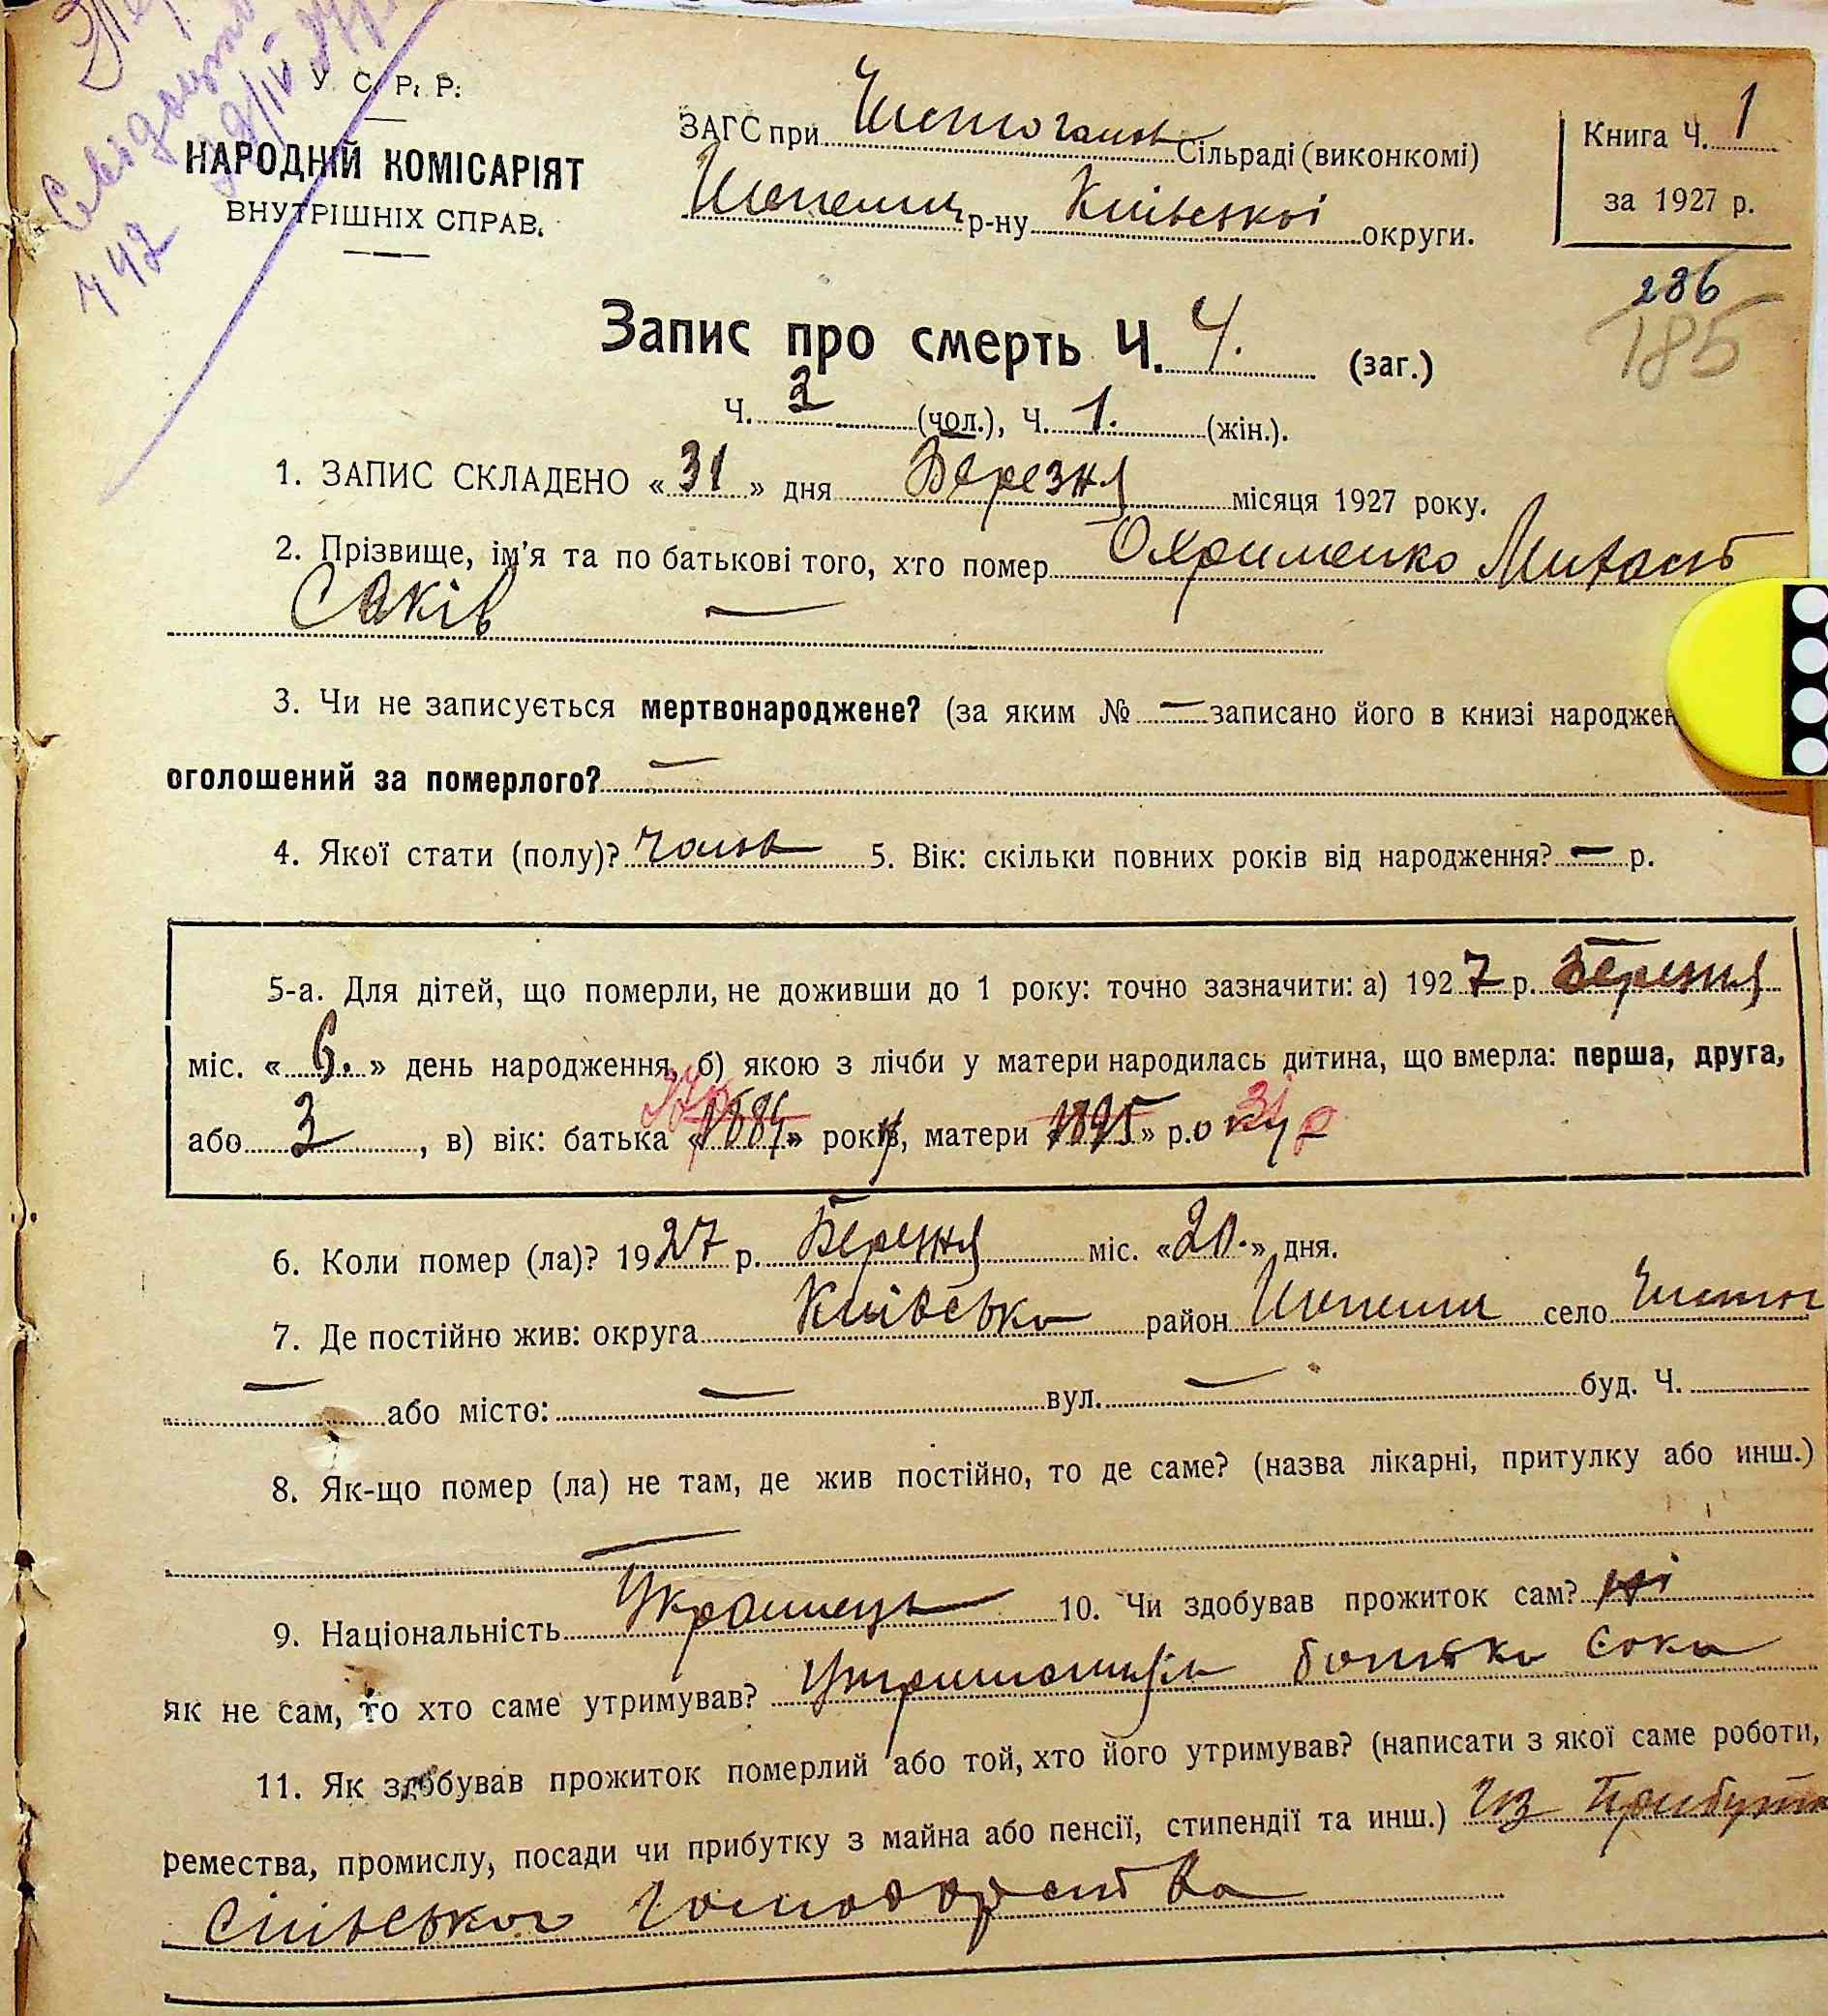 Свідоцтво
29/IV 27р
442
У. С. Р. Р.
НАРОДНІЙ КОМІСАРІЯТ
ВНУТРІШНІХ СПРАВ.
ЗАГС при Сільраді (виконкомі)
р-ну Київської округи.
Книга Ч. 1
за 1927 р.
286
185
Запис про смерть Ч. 4. (заг.)
Ч. 3 (чол.), Ч. 1. (жін.).
1. ЗАПИС СКЛАДЕНО « 31 » дня Березня місяця 1927 року.
2. Прізвище, ім'я та по батькові того, хто помер Охрименко
Саків —
3. Чи не записується мертвонароджене? (за яким № — записано його в книзі народжен
оголошений за померлого? —
4. Якої стати (полу)? чолов 5. Вік: скільки повних років від народження? — р.
5-а. Для дітей, що померли, не доживши до 1 року: точно зазначити: а) 1927 р. Березня
міс. « 6. » день народження, б) якою з лічби у матери народилась дитина, що вмерла: перша, друга,
або 3 , в) вік: батька «1884» років, матери «1895» р.оку 31 р
6. Коли помер (ла)? 1927 р. Березня міс. «20.» дня.
7. Де постійно жив: округа Київсько район село
— або місто: — вул. — буд. Ч.
8. Як-що помер (ла) не там, де жив постійно, то де саме? (назва лікарні, притулку або инш.)
—
9. Національність Українець 10. Чи здобував прожиток сам? ні
як не сам, то хто саме утримував? батька Сака
11. Як здобував прожиток померлий або той, хто його утримував? (написати з якої саме роботи,
ремества, промислу, посади чи прибутку з майна або пенсії, стипендії та инш.) из Прибутк
сільського господарства